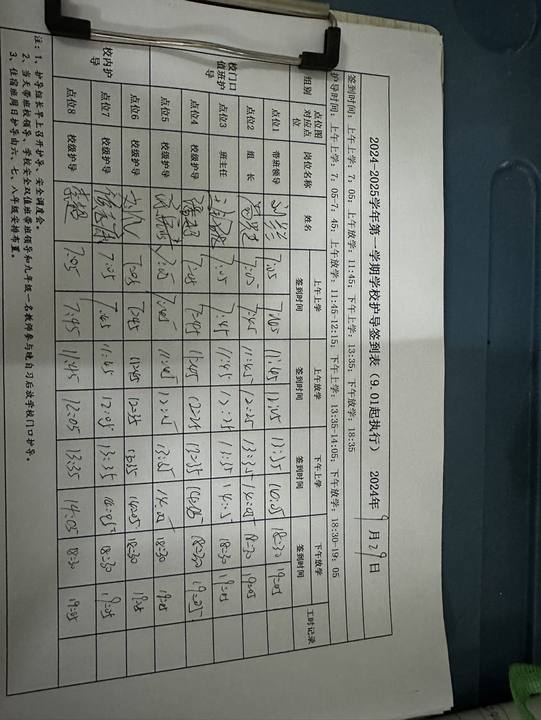 2024-2025学年第一学期学校护导签到表（9.01起执行） 2024年9月29日
签到时间：上午上学：7：05，上午放学：11:45；下午上学：13:35；下午放学：18:35
护导时间：上午上学：7：05-7：45；上午放学：11:45-12:15；下午上学：13:35-14:05；下午放学：18:30-19：05
组别 点位图对应点位 岗位名称 姓名 上午上学签到时间 上午放学签到时间 下午上学签到时间 下午放学签到时间 工时记录
校门口值班护导
点位1 带班领导 7:05 7:05 11:45 13:35 18:30 19:05
点位2 组长 7:05 7:45 11:45 12:25 13:35 14:05 18:30 19:05
点位3 班主任 7:05 7:45 11:45 12:25 13:35 18:30 19:05
点位4 校级护导 7:45 12:25 13:35 14:05 18:30 19:05
点位5 校级护导 7:05 7:45 11:45 14:05 18:30 19:05
点位6 校级护导 7:05 7:45 11:45 12:25 14:05 18:30 19:05
校内护导
点位7 校级护导 7:05 7:45 11:45 12:05 13:35 14:05 18:30 19:05
点位8 校级护导 7:05 7:45 11:45 12:05 13:35 14:05 18:30 19:05
注：1、护导组长早上召开护导、安全调度会。
2、当天带班校领导、学校安全双值班带班领导和九年级一名教师参与晚自习后放学校门口护导。
3、住宿班周日护导由六、七、八年级安排布置。